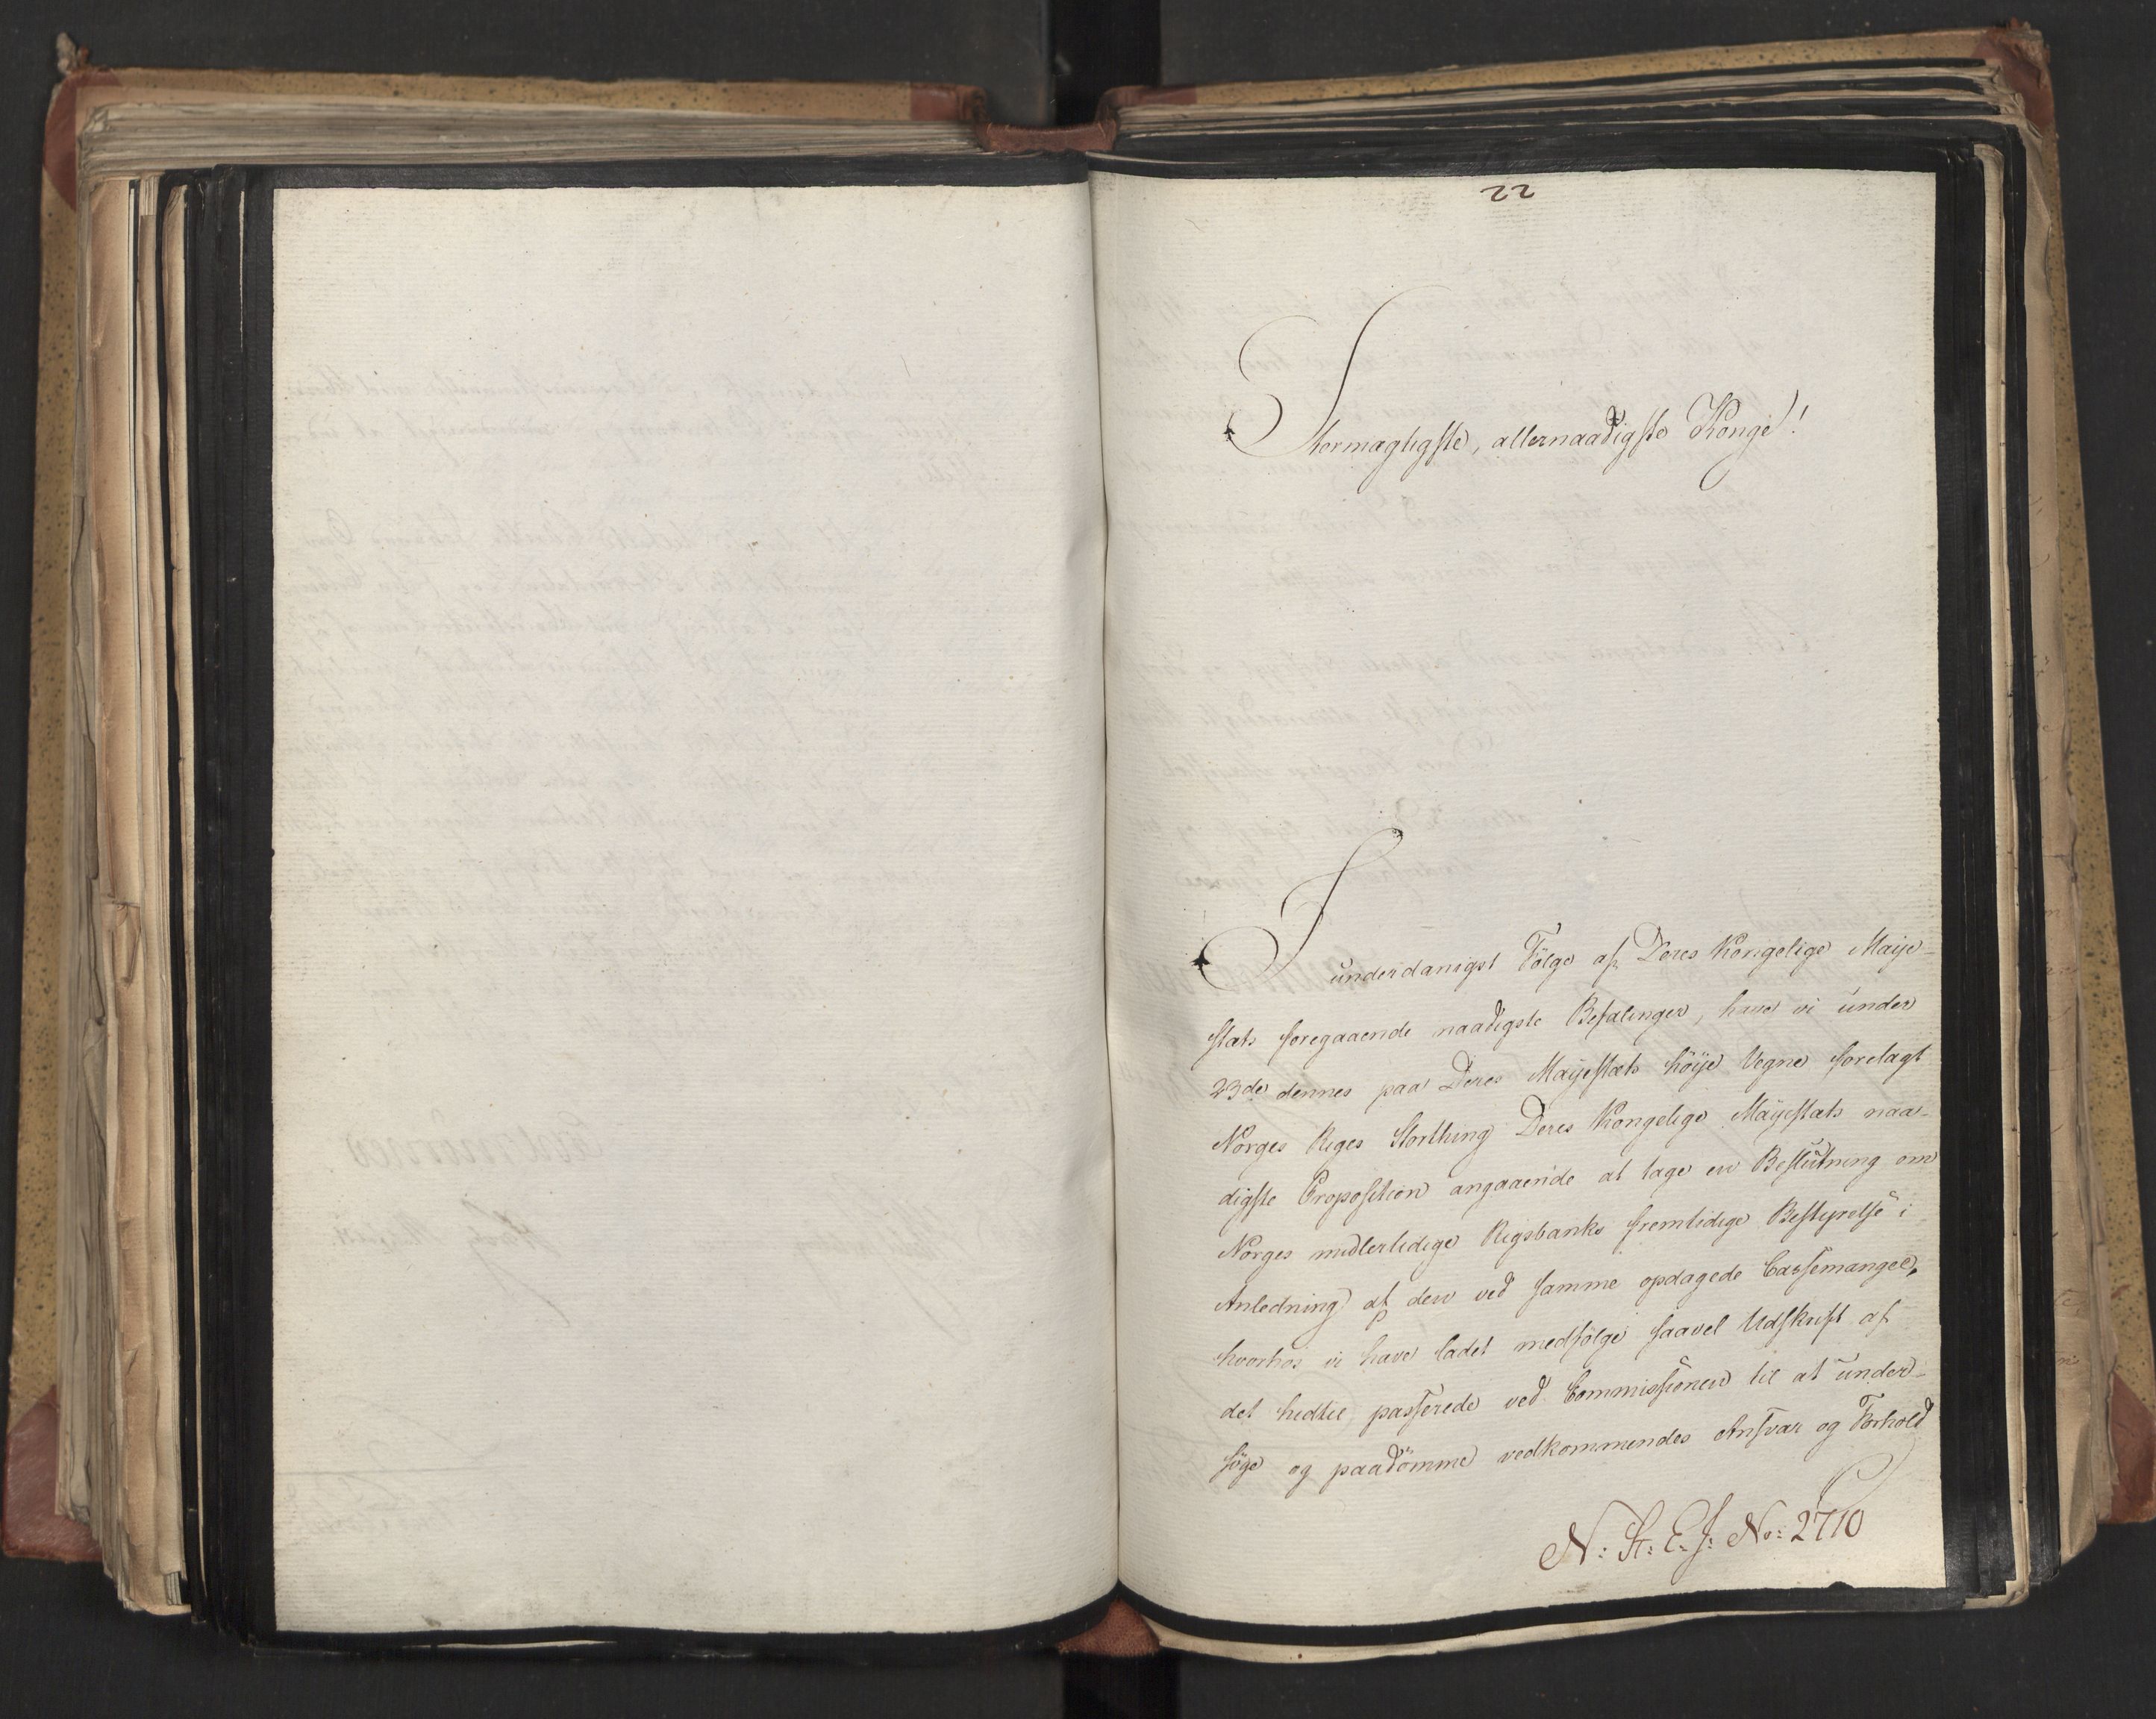 22
Stormægtigste, allernaadigste Konge!
I
underdanigst Følge af Deres Kongelige Maije-
stæts foregaaende naadigste Befalinger, have vi under
23de dennes paa Deres Maijestæts høije Vegne forelagt
Norges Riges Storthing Deres Kongelige Maijestæts naa-
digste Proposition angaaende at tage en Beslutning om
Norges midlertidige Rigsbanks fremtidige Bestyrelse i
Anledning af den ved samme opdagede Cassemangel,
hvorhos vi have ladet medfølge saavel Udskrift af
det hidtil passerede ved Commissionen til at under-
søge og paadømme vedkommendes Ansvar og Forhold
N: St: E. J: No: 2710